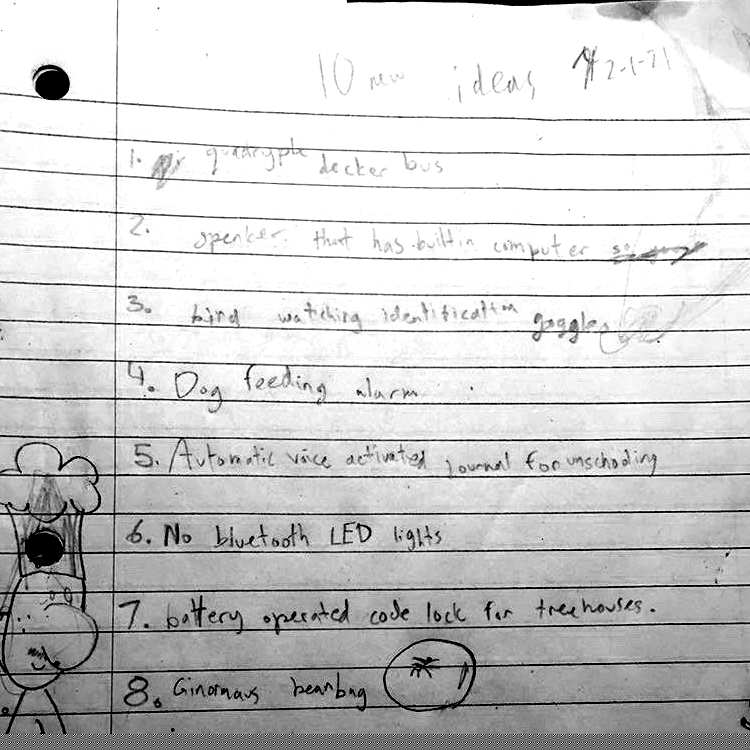 10 new ideas 2-1-21
1. quadryple decker bus
2. speaker that has built in computer
3. bird watching identification goggles
4. Dog feeding alarm
5. Automatic voice activated journal for unschooling
6. No bluetooth LED lights
7. battery operated code lock for treehouses.
8. Ginormaus beanbag